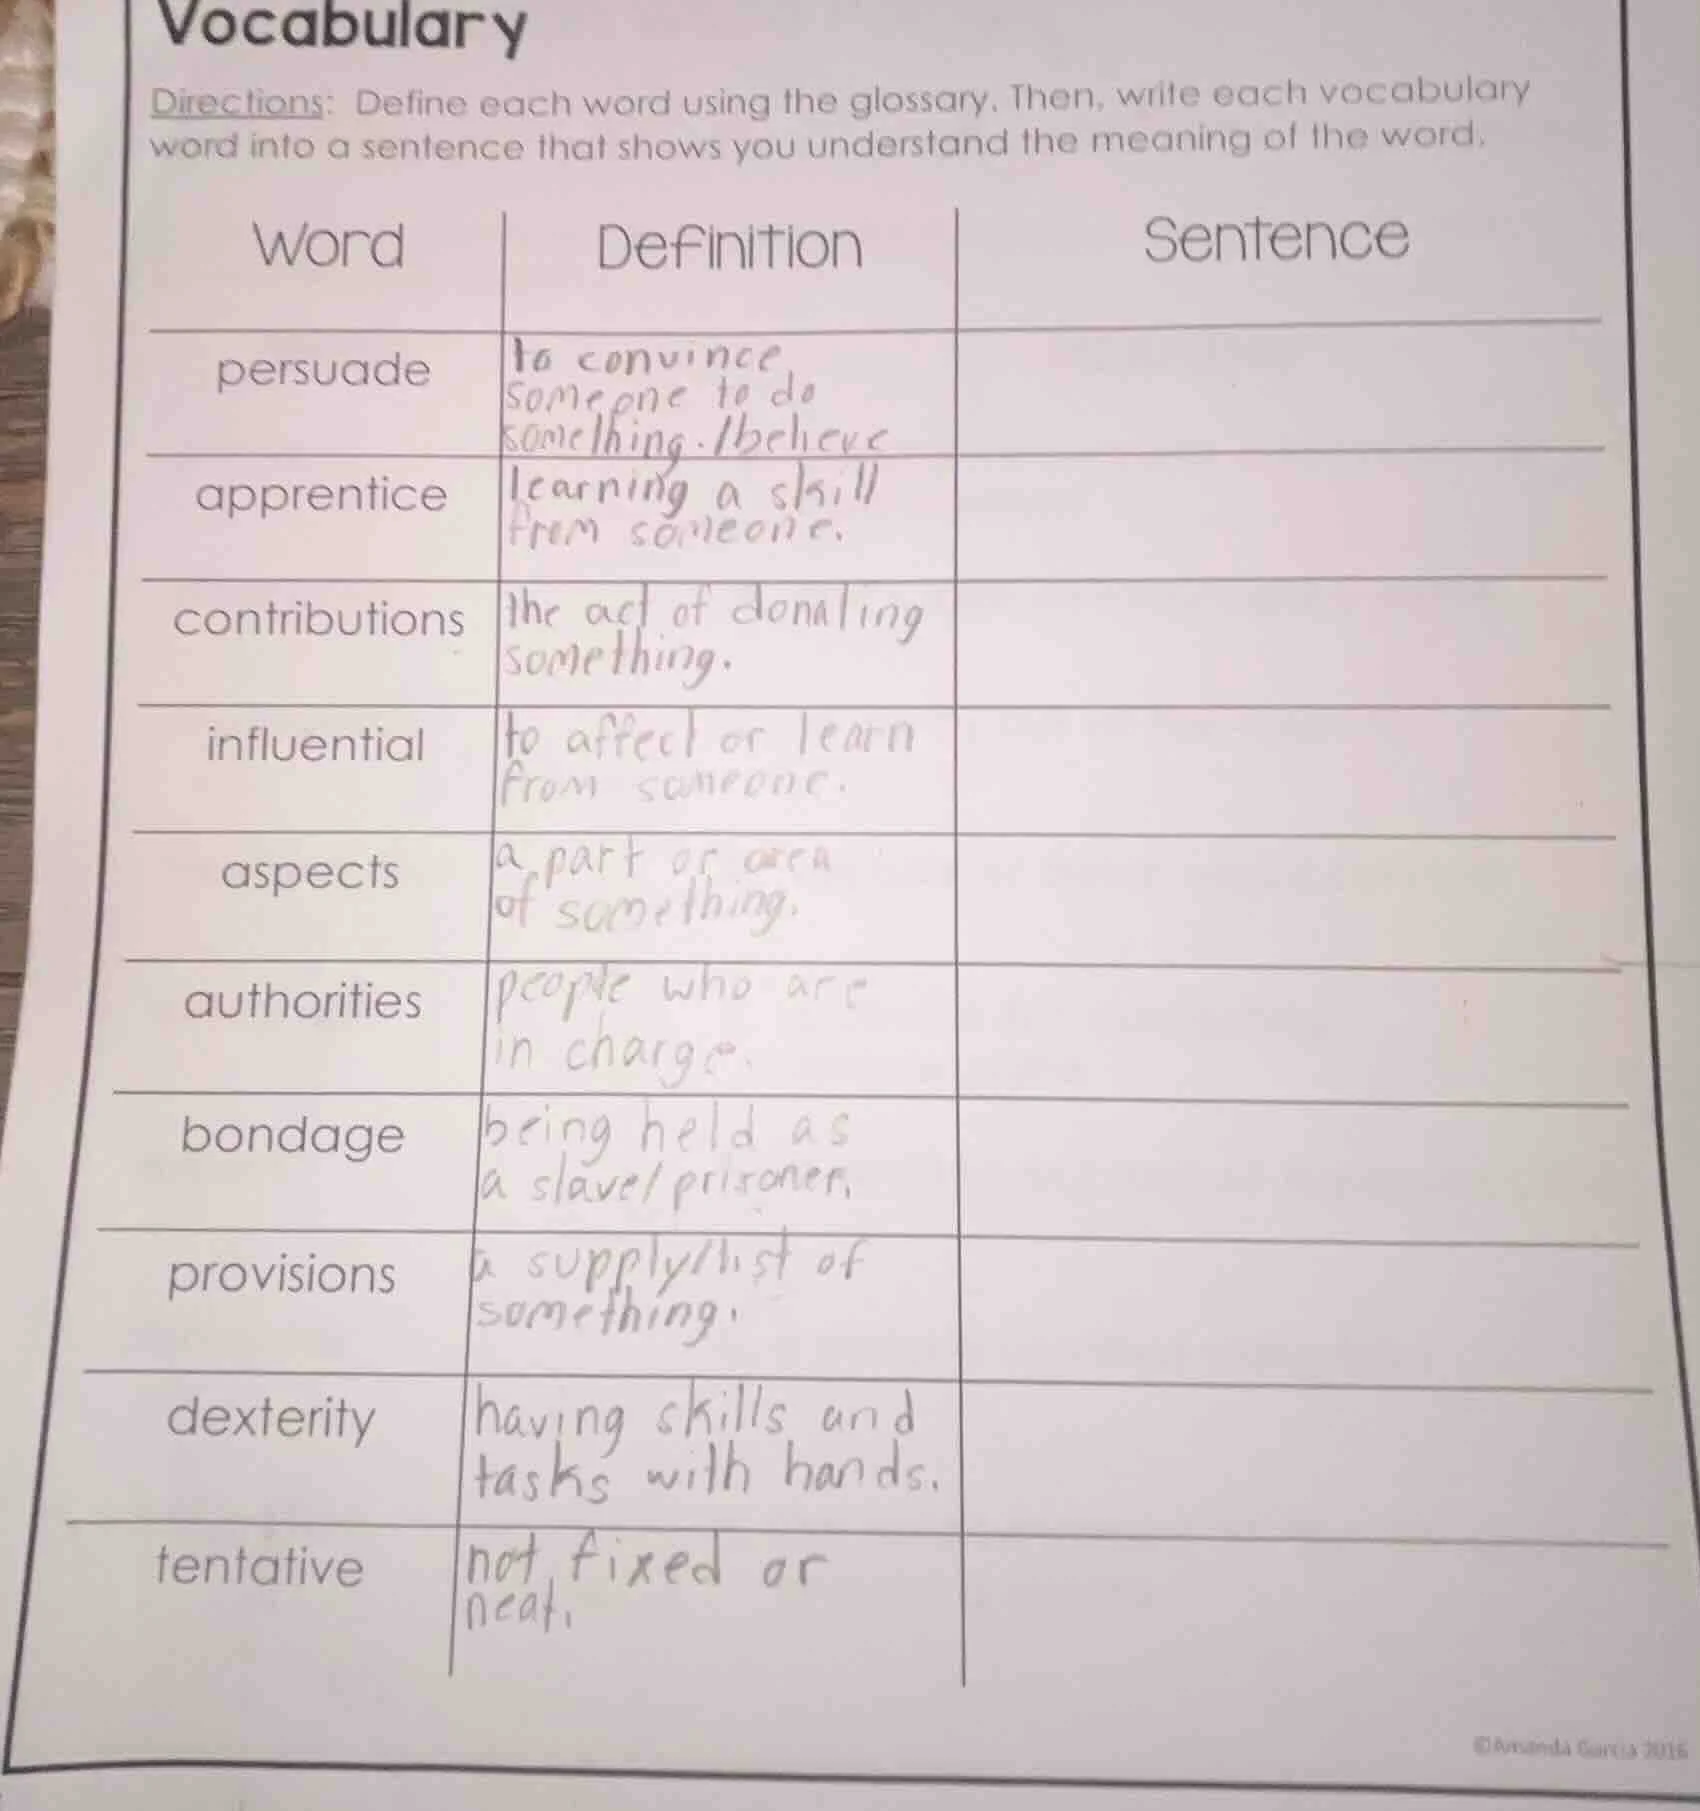 Vocabulary
Directions: Define each word using the glossary. Then, write each vocabulary
word into a sentence that shows you understand the meaning of the word.
Word Definition Sentence
persuade
to convince
someone to do
something./believe
apprentice
learning a skill
from someone.
contributions
the act of donating
something.
influential
to affect or learn
from someone.
aspects
a part or area
of something.
authorities
people who are
in charge.
bondage
being held as
a slave/prisoner.
provisions
a supply/list of
something.
dexterity
having skills and
tasks with hands.
tentative
not fixed or
neat.
©Amanda Garcia 2016